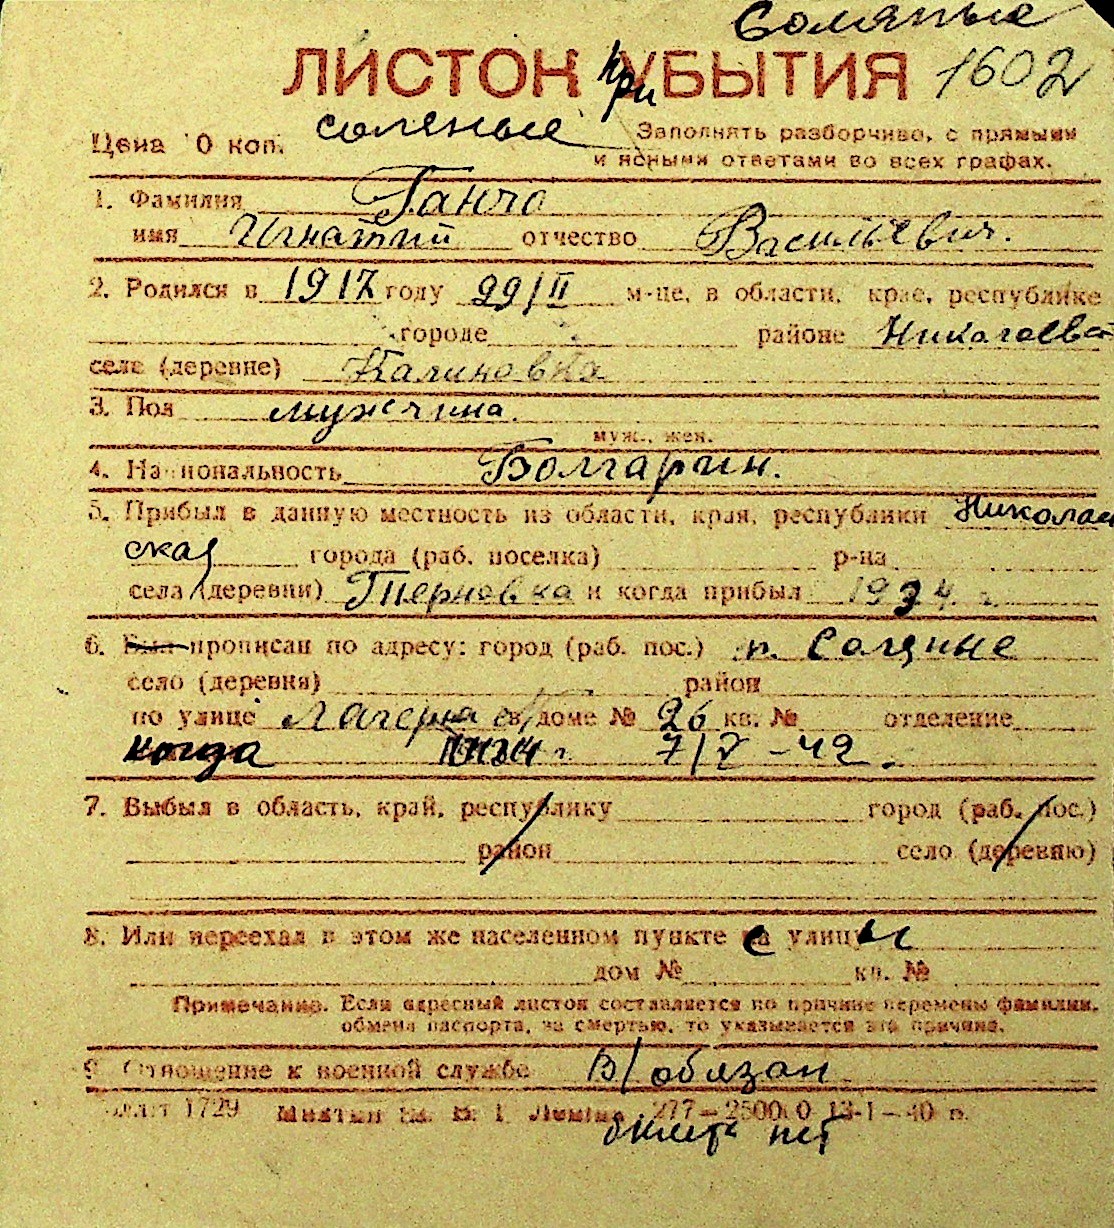 Соляные
ЛИСТОК при УБЫТИЯ 1602
Цена 10 коп. соленые Заполнять разборчиво, с прямыми
и ясными ответами во всех графах.
1. Фамилия Ганчо
имя Игнатий отчество Васильевич.
2. Родился в 1917 году 29/II м-це, в области, крае, республике
городе районе Николаевск
селе (деревне) Калиновка
3. Пол мужчина.
муж., жен.
4. Национальность Болгарин.
5. Прибыл в данную местность из области, края, республики Николаев
ская города (раб. поселка) р-на
села (деревни) Терновка и когда прибыл 1934 г.
6. Был прописан по адресу: город (раб. пос.) п. Соляные
село (деревня) район
по улице Лагерная в доме № 26 кв. № отделение
когда 7/V-42.
7. Выбыл в область, край, республику город (раб. пос.)
район село (деревню)
8. Или переехал в этом же населенном пункте с улицы
дом № кв. №
Примечание. Если адресный листок составляется по причине перемены фамилии,
обмена паспорта, за смертью, то указывается эта причина.
9. Отношение к военной службе В/обязан
1729 им. В. И. Ленина 277—25000 13-1—40 г.
нет